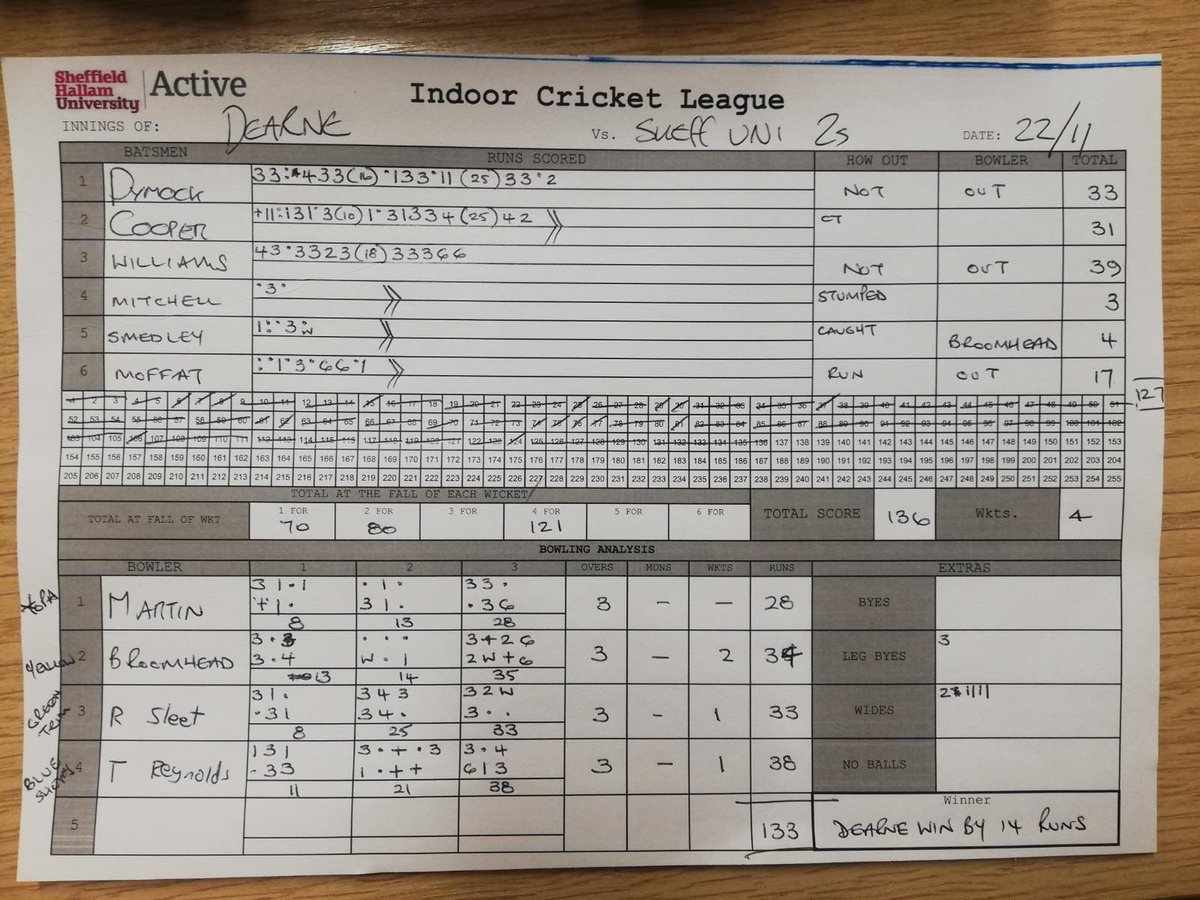 Sheffield Hallam University Active
Indoor Cricket League
INNINGS OF: DEARNE Vs. SHEFF UNI 2s DATE: 22/11
BATSMEN RUNS SCORED HOW OUT BOWLER TOTAL
1 DYMOCK (16) (25) 33·2 NOT OUT 33
2 COOPER (10) 1·31334(25)42 CT 31
3 WILLIAMS 43·3323(18)33366 NOT OUT 39
4 MITCHELL ·3· STUMPED 3
5 SMEDLEY CAUGHT BROOMHEAD 4
6 MOFFAT RUN OUT 17
1 2 3 4 5 6 7 8 9 10 11 12 13 14 15 16 17 18 19 20 21 22 23 24 25 26 27 28 29 30 31 32 33 34 35 36 37 38 39 40 41 42 43 44 45 46 47 48 49 50 51 127
52 53 54 55 56 57 58 59 60 61 62 63 64 65 66 67 68 69 70 71 72 73 74 75 76 77 78 79 80 81 82 83 84 85 86 87 88 89 90 91 92 93 94 95 96 97 98 99 100 101 102
103 104 105 106 107 108 109 110 111 112 113 114 115 116 117 118 119 120 121 122 123 124 125 126 127 128 129 130 131 132 133 134 135 136 137 138 139 140 141 142 143 144 145 146 147 148 149 150 151 152 153
154 155 156 157 158 159 160 161 162 163 164 165 166 167 168 169 170 171 172 173 174 175 176 177 178 179 180 181 182 183 184 185 186 187 188 189 190 191 192 193 194 195 196 197 198 199 200 201 202 203 204
205 206 207 208 209 210 211 212 213 214 215 216 217 218 219 220 221 222 223 224 225 226 227 228 229 230 231 232 233 234 235 236 237 238 239 240 241 242 243 244 245 246 247 248 249 250 251 252 253 254 255
TOTAL AT THE FALL OF EACH WICKET
TOTAL AT FALL OF WKT 1 FOR 2 FOR 3 FOR 4 FOR 5 FOR 6 FOR TOTAL SCORE 136 Wkts. 4
70 80 121
BOWLING ANALYSIS
BOWLER 1 2 3 OVERS MDNS WKTS RUNS EXTRAS
31·1 ·1· 33·
1 MARTIN +1· 31· ·36 3 - - 28 BYES
8 13 28
3· ··· 3+26 3
YELLOW 2 BROOMHEAD 3·4 W·1 2W+6 3 - 2 34 LEG BYES
13 14 35
31· 343 32W
GREEN TRIM 3 R Sleet ·31 34· 3·· 3 - 1 33 WIDES
8 25 33
131 3·+·3 3·4
BLUE 4 T Reynolds ·33 1·++ 613 3 - 1 38 NO BALLS
11 21 38
Winner
5 133 DEARNE WIN BY 14 RUNS